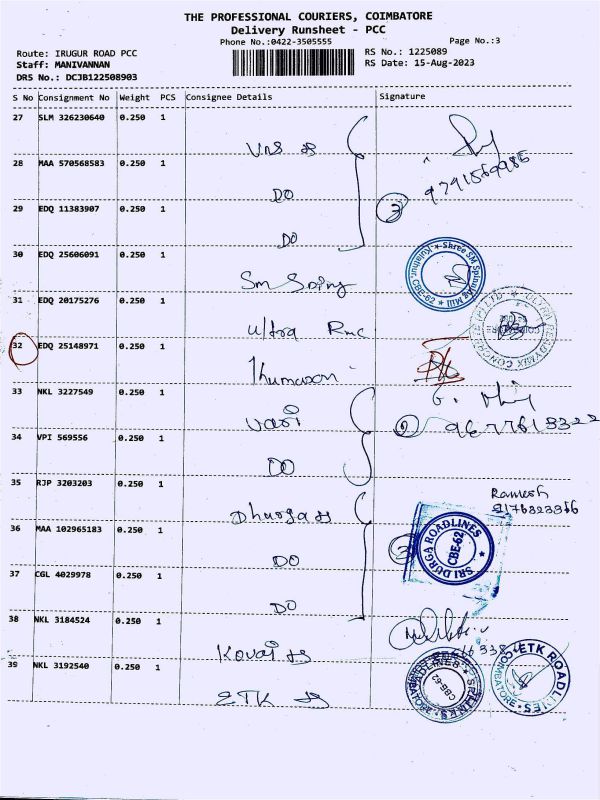 THE PROFESSIONAL COURIERS, COIMBATORE
Delivery Runsheet - PCC
Phone No.:0422-3505555
Page No.:3
Route: IRUGUR ROAD PCC
RS No.: 1225089
Staff: MANIVANNAN
RS Date: 15-Aug-2023
DRS No.: DCJB122508903
S No Consignment No Weight PCS Consignee Details Signature
27 SLM 326230640 0.250 1
VRS
28 MAA 570568583 0.250 1
9791569985
DO
29 EDQ 11383907 0.250 1
3
DO
30 EDQ 25606091 0.250 1
Shree SM Spinning Mill
Kalathur, CBE-62
Sm
31 EDQ 20175276 0.250 1
Ultra Rmc
ULTRA READYMIX CONCRETE (P) LTD
32 EDQ 25148971 0.250 1
33 NKL 3227549 0.250 1
34 VPI 569556 0.250 1
DO
35 RJP 3203203 0.250 1
Ramesh
Dhurga
SRI DURGA ROADLINES
CBE-62
36 MAA 102965183 0.250 1
3
DO
37 CGL 4029978 0.250 1
DO
38 NKL 3184524 0.250 1
Kovai
39 NKL 3192540 0.250 1
ETK
ROADLINES
CBE-62
ETK ROADLINES
COIMBATORE